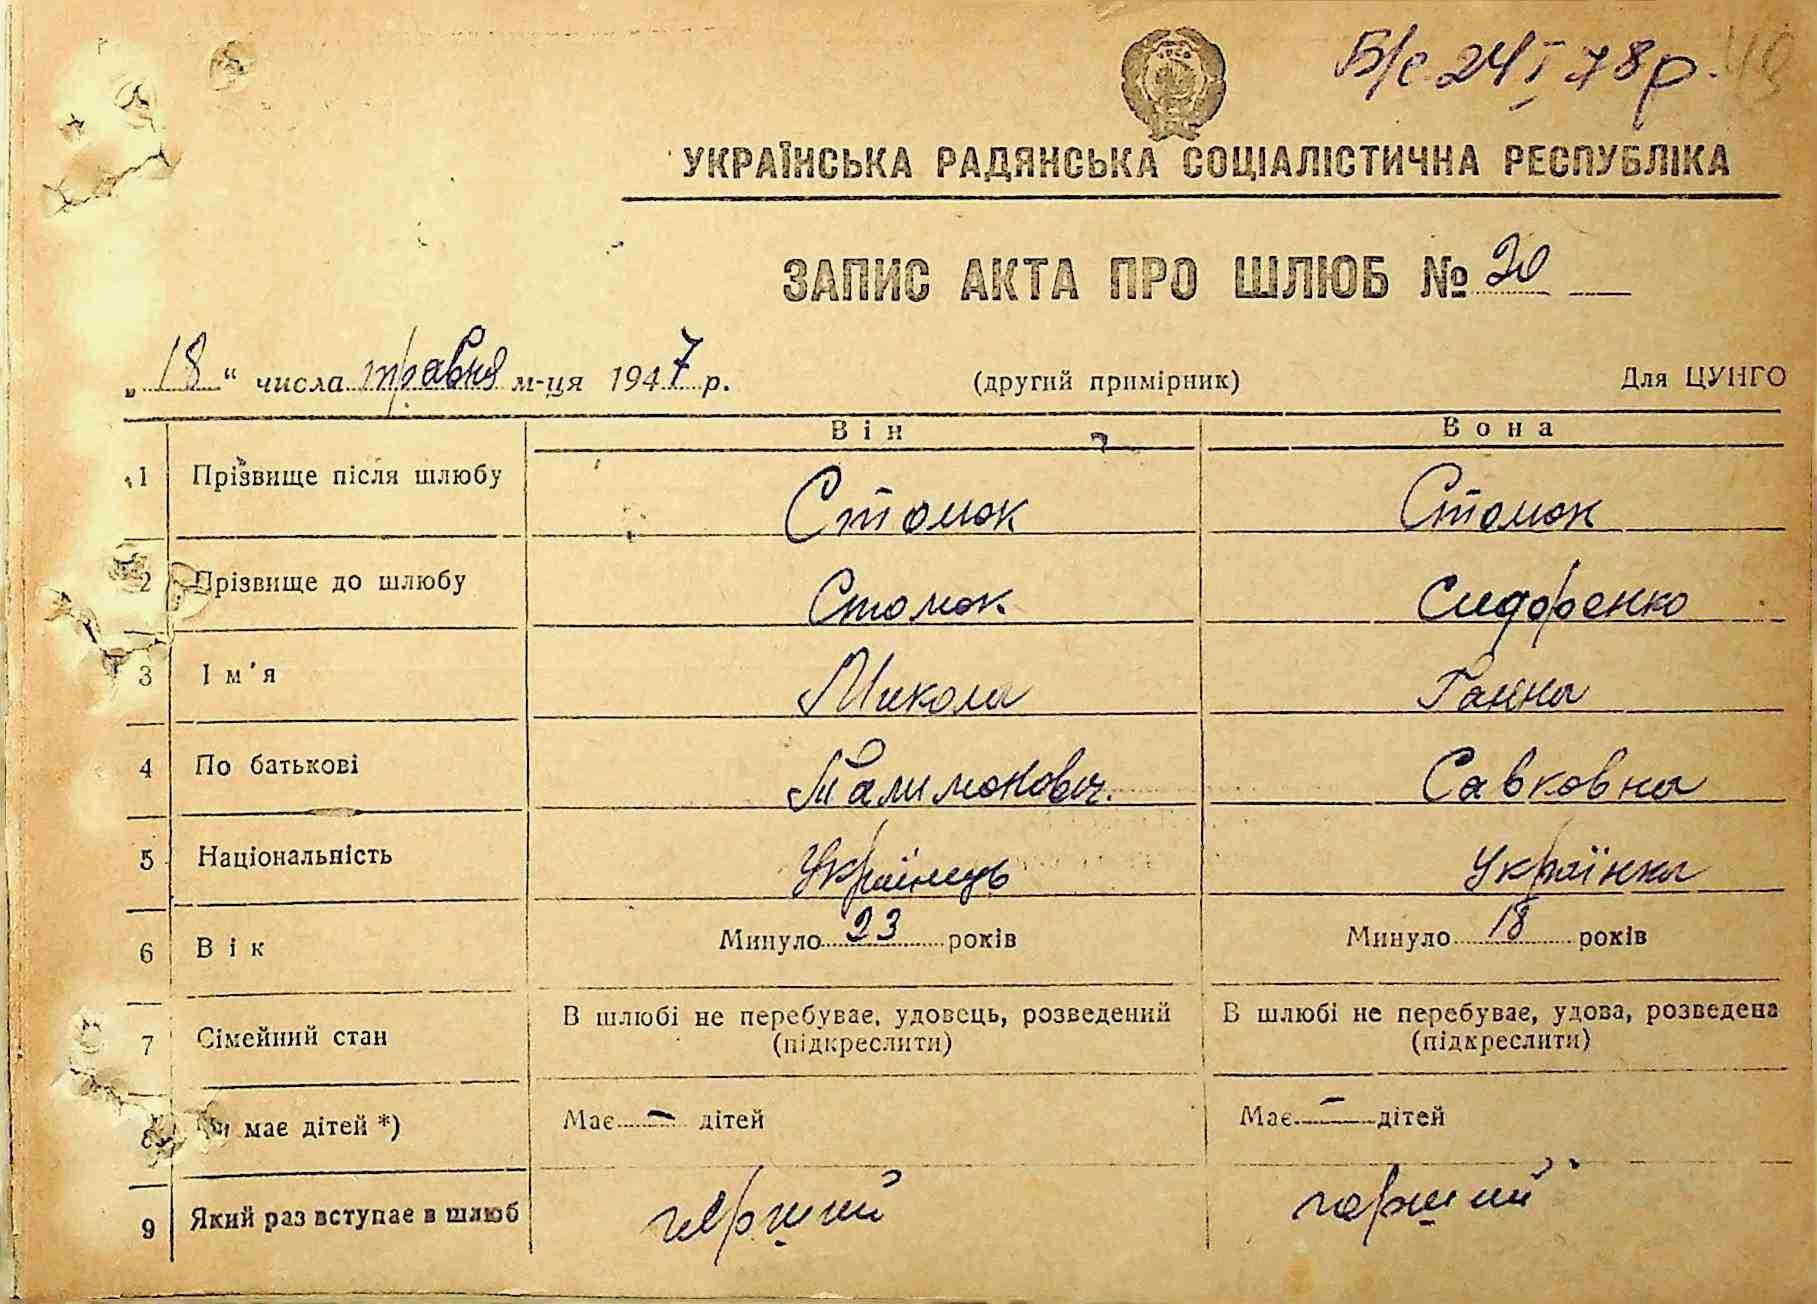 Б/с 24 I 78 р. 48
УКРАЇНСЬКА РАДЯНСЬКА СОЦІАЛІСТИЧНА РЕСПУБЛІКА
ЗАПИС АКТА ПРО ШЛЮБ № 20
„18“ числа травня м-ця 1947 р. (другий примірник) Для ЦУНГО
Він Вона
1 Прізвище після шлюбу Стомок Стомок
2 Прізвище до шлюбу Стомок Сидоренко
3 Ім'я Микола Ганна
4 По батькові Талимонович. Савковна
5 Національність Українець Українка
6 Вік Минуло 23 років Минуло 18 років
7 Сімейний стан В шлюбі не перебуває, удовець, розведений В шлюбі не перебуває, удова, розведена
(підкреслити) (підкреслити)
8 має дітей *) Має — дітей Має — дітей
9 Який раз вступає в шлюб перший перший